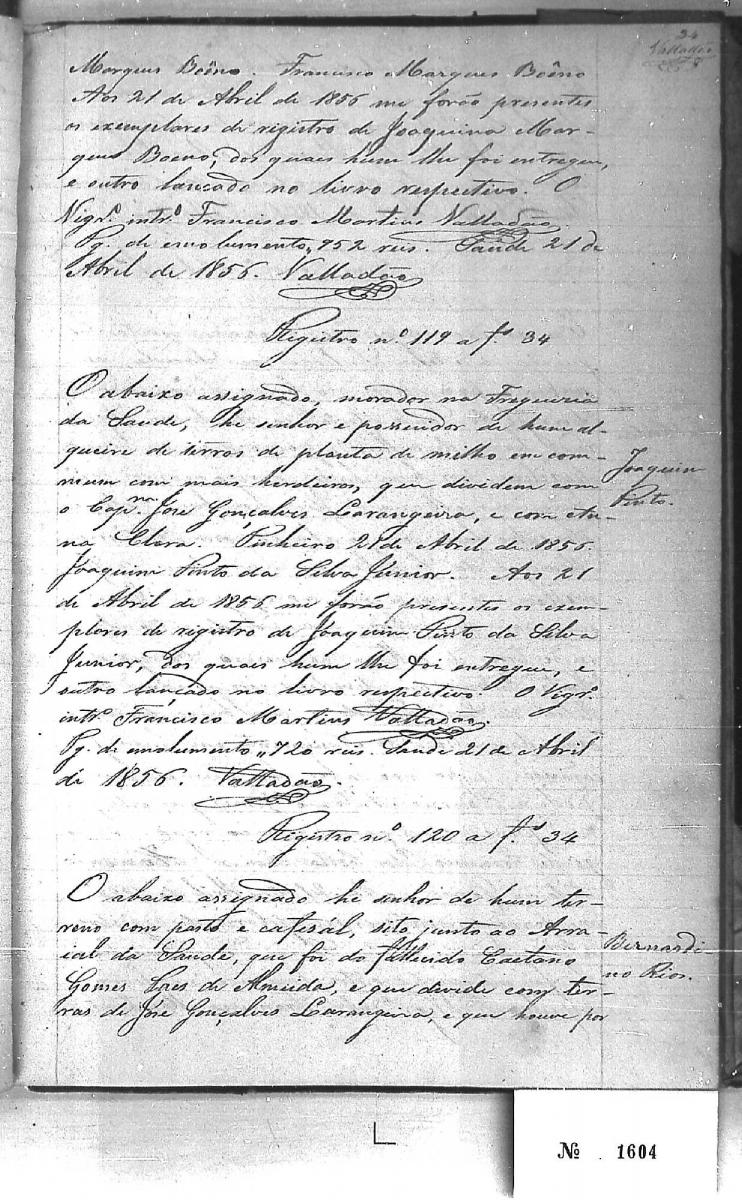 34
Valladão
Marques Boêno. Francisco Marques Boêno
Aos 21 de Abril de 1856 me forão presentes
os exemplares de registro de Joaquina Mar-
ques Boeno, dos quais hum lhe foi entregue,
e outro lançado no livro respectivo. O
Vigrº. intrº. Francisco Martins Valladão.
Pg. de emolumento, 752 reis. Saude 21 de
Abril de 1856. Valladão
Registro nº. 119 a fs. 34
O abaixo assignado, morador na Freguesia
da Saude, he senhor e possuidor de hum al-
queire de terras de planta de milho em com-
mum com mais herdeiros, que dividem com
o Capm. José Gonçalves Laranjeira, e com
na Clara. Pinheiro 21 de Abril de 1856.
Joaquim Pinto da Silva Junior. Aos 21
de Abril de 1856 me forão presentes os exem-
plares de registro de Joaquim Pinto da Silva
Junior, dos quaes hum lhe foi entregue, e
outro lançado no livro respectivo. O Vigrº.
intrº. Francisco Martins Valladão.
Pg. de emolumento "720 reis. Saude 21 de Abril
de 1856. Valladão.
Joaquim
Pinto.
Registro nº. 120 a fs. 34
O abaixo assignado he senhor de hum ter-
reno com pasto e cafesál, sito junto ao Arra-
ial da Saude, que foi do fallecido Caetano
Gomes de Almeida, e que divide com ter-
ras de José Gonçalves Laranjeira, e que houve por
Bernardi-
no Rios.
№ 1604